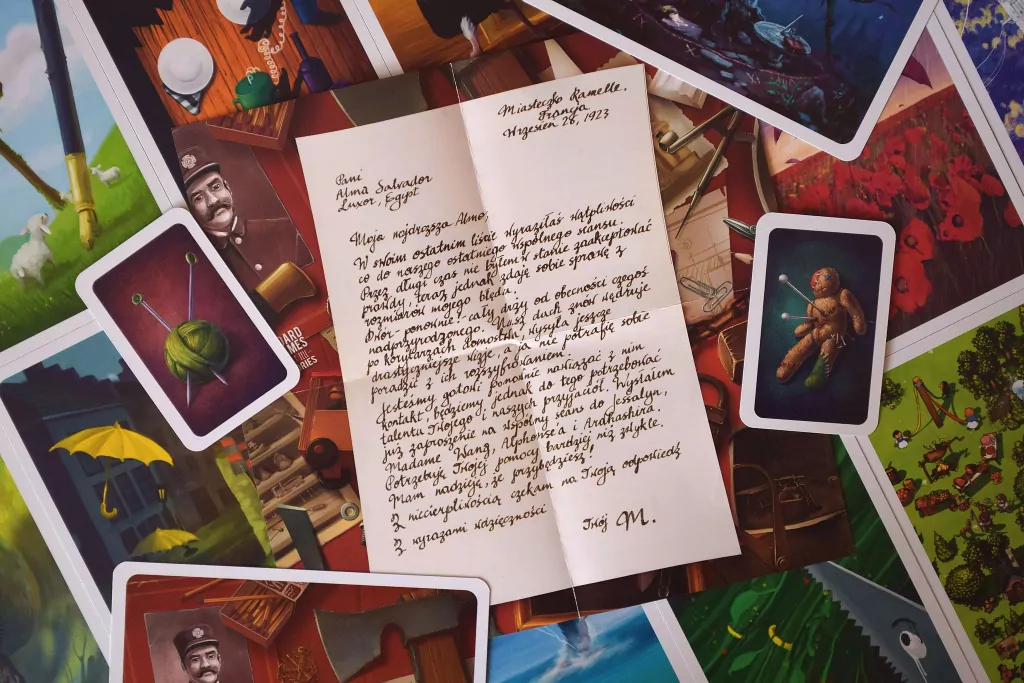 Miasteczko Ramelle,
Francja
Wrzesień 26, 1923
Pani
Alma Salvador
Luxor, Egipt
Moja najdroższa Almo,
W swoim ostatnim liście wyraziłaś wątpliwości
co do naszego ostatniego wspólnego seansu.
Przez długi czas nie byłem w stanie zaakceptować
prawdy, teraz jednak zdaję sobie sprawę z
rozmiarów mojego błędu.
Dwór - ponownie - cały drży od obecności czegoś
nadprzyrodzonego. Nasz duch znów wędruje
po korytarzach domostwa, wysyła jeszcze
drastyczniejsze wizje, a ja nie potrafię sobie
poradzić z ich rozszyfrowaniem.
Jesteśmy gotowi ponownie nawiązać z nim
kontakt, będziemy jednak do tego potrzebować
talentu Twojego i naszych przyjaciół. Wysłałem
już zaproszenie na wspólny seans do Jessalyn,
Madame Wang, Alphonse'a i Ardhashira.
Potrzebuję Twojej pomocy bardziej niż zwykle.
Mam nadzieję, że przybędziesz,
Z niecierpliwością czekam na Twoją odpowiedź
Z wyrazami wdzięczności
Twój M.
CARD
GAMES
SERIES